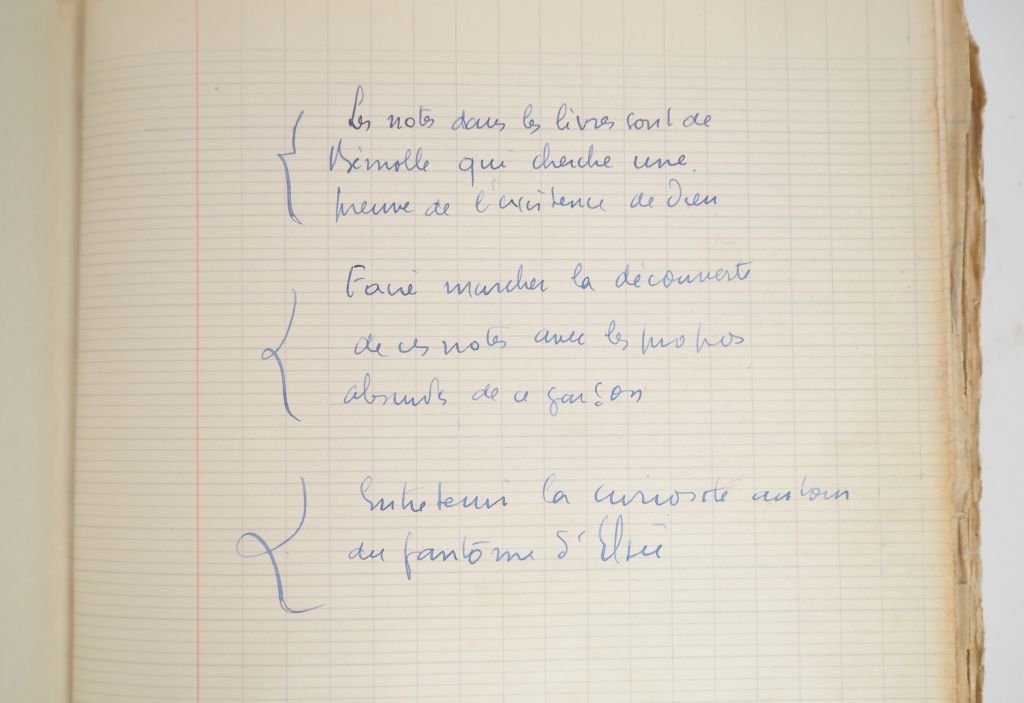 Les notes dans les livres sont de
Bémolle qui cherche une
preuve de l'existence de Dieu
Faire marcher la découverte
de ces notes avec les propos
absurdes de ce garçon
Entretenir la curiosité autour
du fantôme d'Elsie